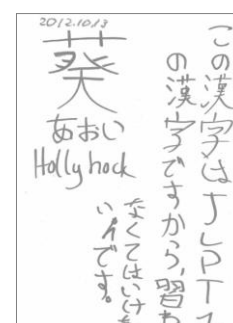 2012.10.13
葵
あおい
Holly hock
この漢字はJLPT
の漢字ですから,習
なくてはいけ
いイです。